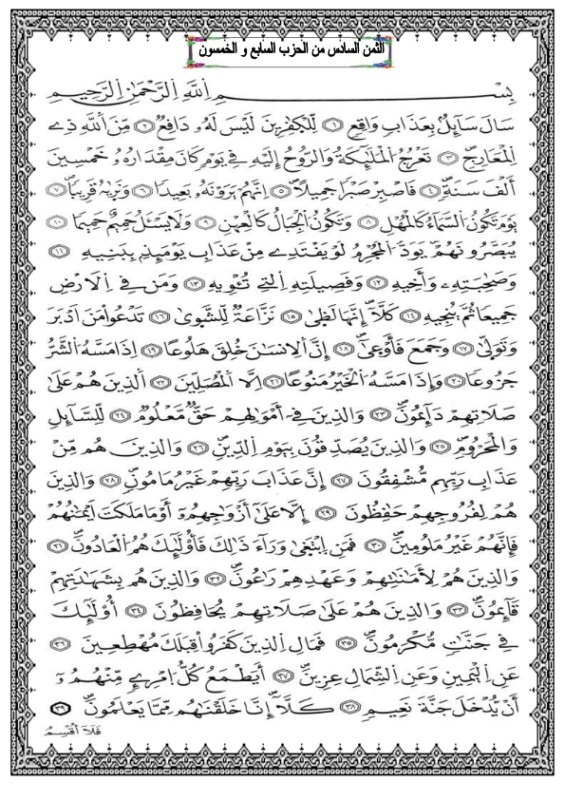 الثمن السادس من الحزب السابع و الخمسون
بِسْمِ اللَّهِ الرَّحْمَٰنِ الرَّحِيمِ
سَالَ سَآئِلُۢ بِعَذَابٖ وَاقِعٖ ١ لِّلْكٰفِرِينَ لَيْسَ لَهُۥ دَافِعٞ ٢ مِّنَ اَ۬للَّهِ ذِے
اِ۬لْمَعَارِجِۖ ٣ تَعْرُجُ اُ۬لْمَلَٰٓئِكَةُ وَالرُّوحُ إِلَيْهِ فِے يَوْمٖ كَانَ مِقْدَارُهُۥ خَمْسِينَ
أَلْفَ سَنَةٖۖ ٤ فَاصْبِرْ صَبْراٗ جَمِيلاًۖ ٥ اِنَّهُمْ يَرَوْنَهُۥ بَعِيداٗ ٦ وَنَرٰيهُ قَرِيباٗۖ ٧
يَوْمَ تَكُونُ اُ۬لسَّمَآءُ كَالْمُهْلِ ٨ وَتَكُونُ اُ۬لْجِبَالُ كَالْعِهْنِ ٩ وَلَا يَسْـَٔلُ حَمِيمٌ حَمِيماٗ ١٠
يُبَصَّرُونَهُمْۖ يَوَدُّ اُ۬لْمُجْرِمُ لَوْ يَفْتَدِے مِنْ عَذَابِ يَوْمَئِذِۢ بِبَنِيهِ ١١
وَصَٰحِبَتِهِۦ وَأَخِيهِ ١٢ وَفَصِيلَتِهِ اِ۬لتِے تُـْٔوِيهِ ١٣ وَمَن فِے اِ۬لَارْضِ
جَمِيعاٗ ثُمَّ يُنجِيهِ ١٤ كَلَّآۖ إِنَّهَا لَظ۪يٰ ١٥ نَزَّاعَةٞ لِّلشَّو۪يٰ ١٦ تَدْعُواْ مَنَ اَدْبَرَ
وَتَوَلّ۪يٰ ١٧ وَجَمَعَ فَأَوْع۪يٰٓۖ ١٨ إِنَّ اَ۬لِانسَٰنَ خُلِقَ هَلُوعاً ١٩ اِذَا مَسَّهُ اُ۬لشَّرُّ
جَزُوعاٗ ٢٠ وَإِذَا مَسَّهُ اُ۬لْخَيْرُ مَنُوعاً ٢١ اِلَّا اَ۬لْمُصَلِّينَ ٢٢ اَ۬لذِينَ هُمْ عَلَىٰ
صَلَاتِهِمْ دَآئِمُونَۖ ٢٣ وَالذِينَ فِےٓ أَمْوَٰلِهِمْ حَقّٞ مَّعْلُومٞ ٢٤ لِّلسَّآئِلِ
وَالْمَحْرُومِۖ ٢٥ وَالذِينَ يُصَدِّقُونَ بِيَوْمِ اِ۬لدِّينِۖ ٢٦ وَالذِينَ هُم مِّنْ
عَذَابِ رَبِّهِم مُّشْفِقُونَ ٢٧ إِنَّ عَذَابَ رَبِّهِمْ غَيْرُ مَامُونٖۖ ٢٨ وَالذِينَ
هُمْ لِفُرُوجِهِمْ حَٰفِظُونَ ٢٩ إِلَّا عَلَىٰٓ أَزْوَٰجِهِمُۥٓ أَوْ مَا مَلَكَتَ اَيْمَٰنُهُمْ
فَإِنَّهُمْ غَيْرُ مَلُومِينَۖ ٣٠ فَمَنِ اِ۪بْتَغ۪يٰ وَرَآءَ ذَٰلِكَ فَأُوْلَٰٓئِكَ هُمُ اُ۬لْعَادُونَۖ ٣١
وَالذِينَ هُمْ لِأَمَٰنَٰتِهِمْ وَعَهْدِهِمْ رَٰعُونَۖ ٣٢ وَالذِينَ هُم بِشَهَٰدَتِهِمْ
قَآئِمُونَۖ ٣٣ وَالذِينَ هُمْ عَلَىٰ صَلَاتِهِمْ يُحَافِظُونَۖ ٣٤ أُوْلَٰٓئِكَ
فِے جَنَّٰتٖ مُّكْرَمُونَۖ ٣٥ فَمَالِ اِ۬لذِينَ كَفَرُواْ قِبَلَكَ مُهْطِعِينَ ٣٦
عَنِ اِ۬لْيَمِينِ وَعَنِ اِ۬لشِّمَالِ عِزِينَۖ ٣٧ أَيَطْمَعُ كُلُّ اُ۪مْرِےٕٖ مِّنْهُمُۥٓ
أَنْ يُّدْخَلَ جَنَّةَ نَعِيمٖ ٣٨ كَلَّآۖ إِنَّا خَلَقْنَٰهُم مِّمَّا يَعْلَمُونَۖ ٣٩
فَلَآ أُقْسِمُ